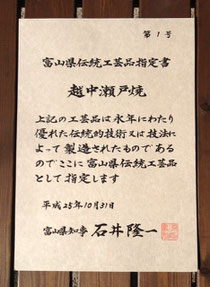 第1号
富山県伝統工芸品指定書
越中瀬戸焼
上記の工芸品は永年にわたり
優れた伝統的技術又は技法に
よって製造されたものである
のでここに富山県伝統工芸品
として指定します
平成25年10月31日
富山県知事 石井隆一